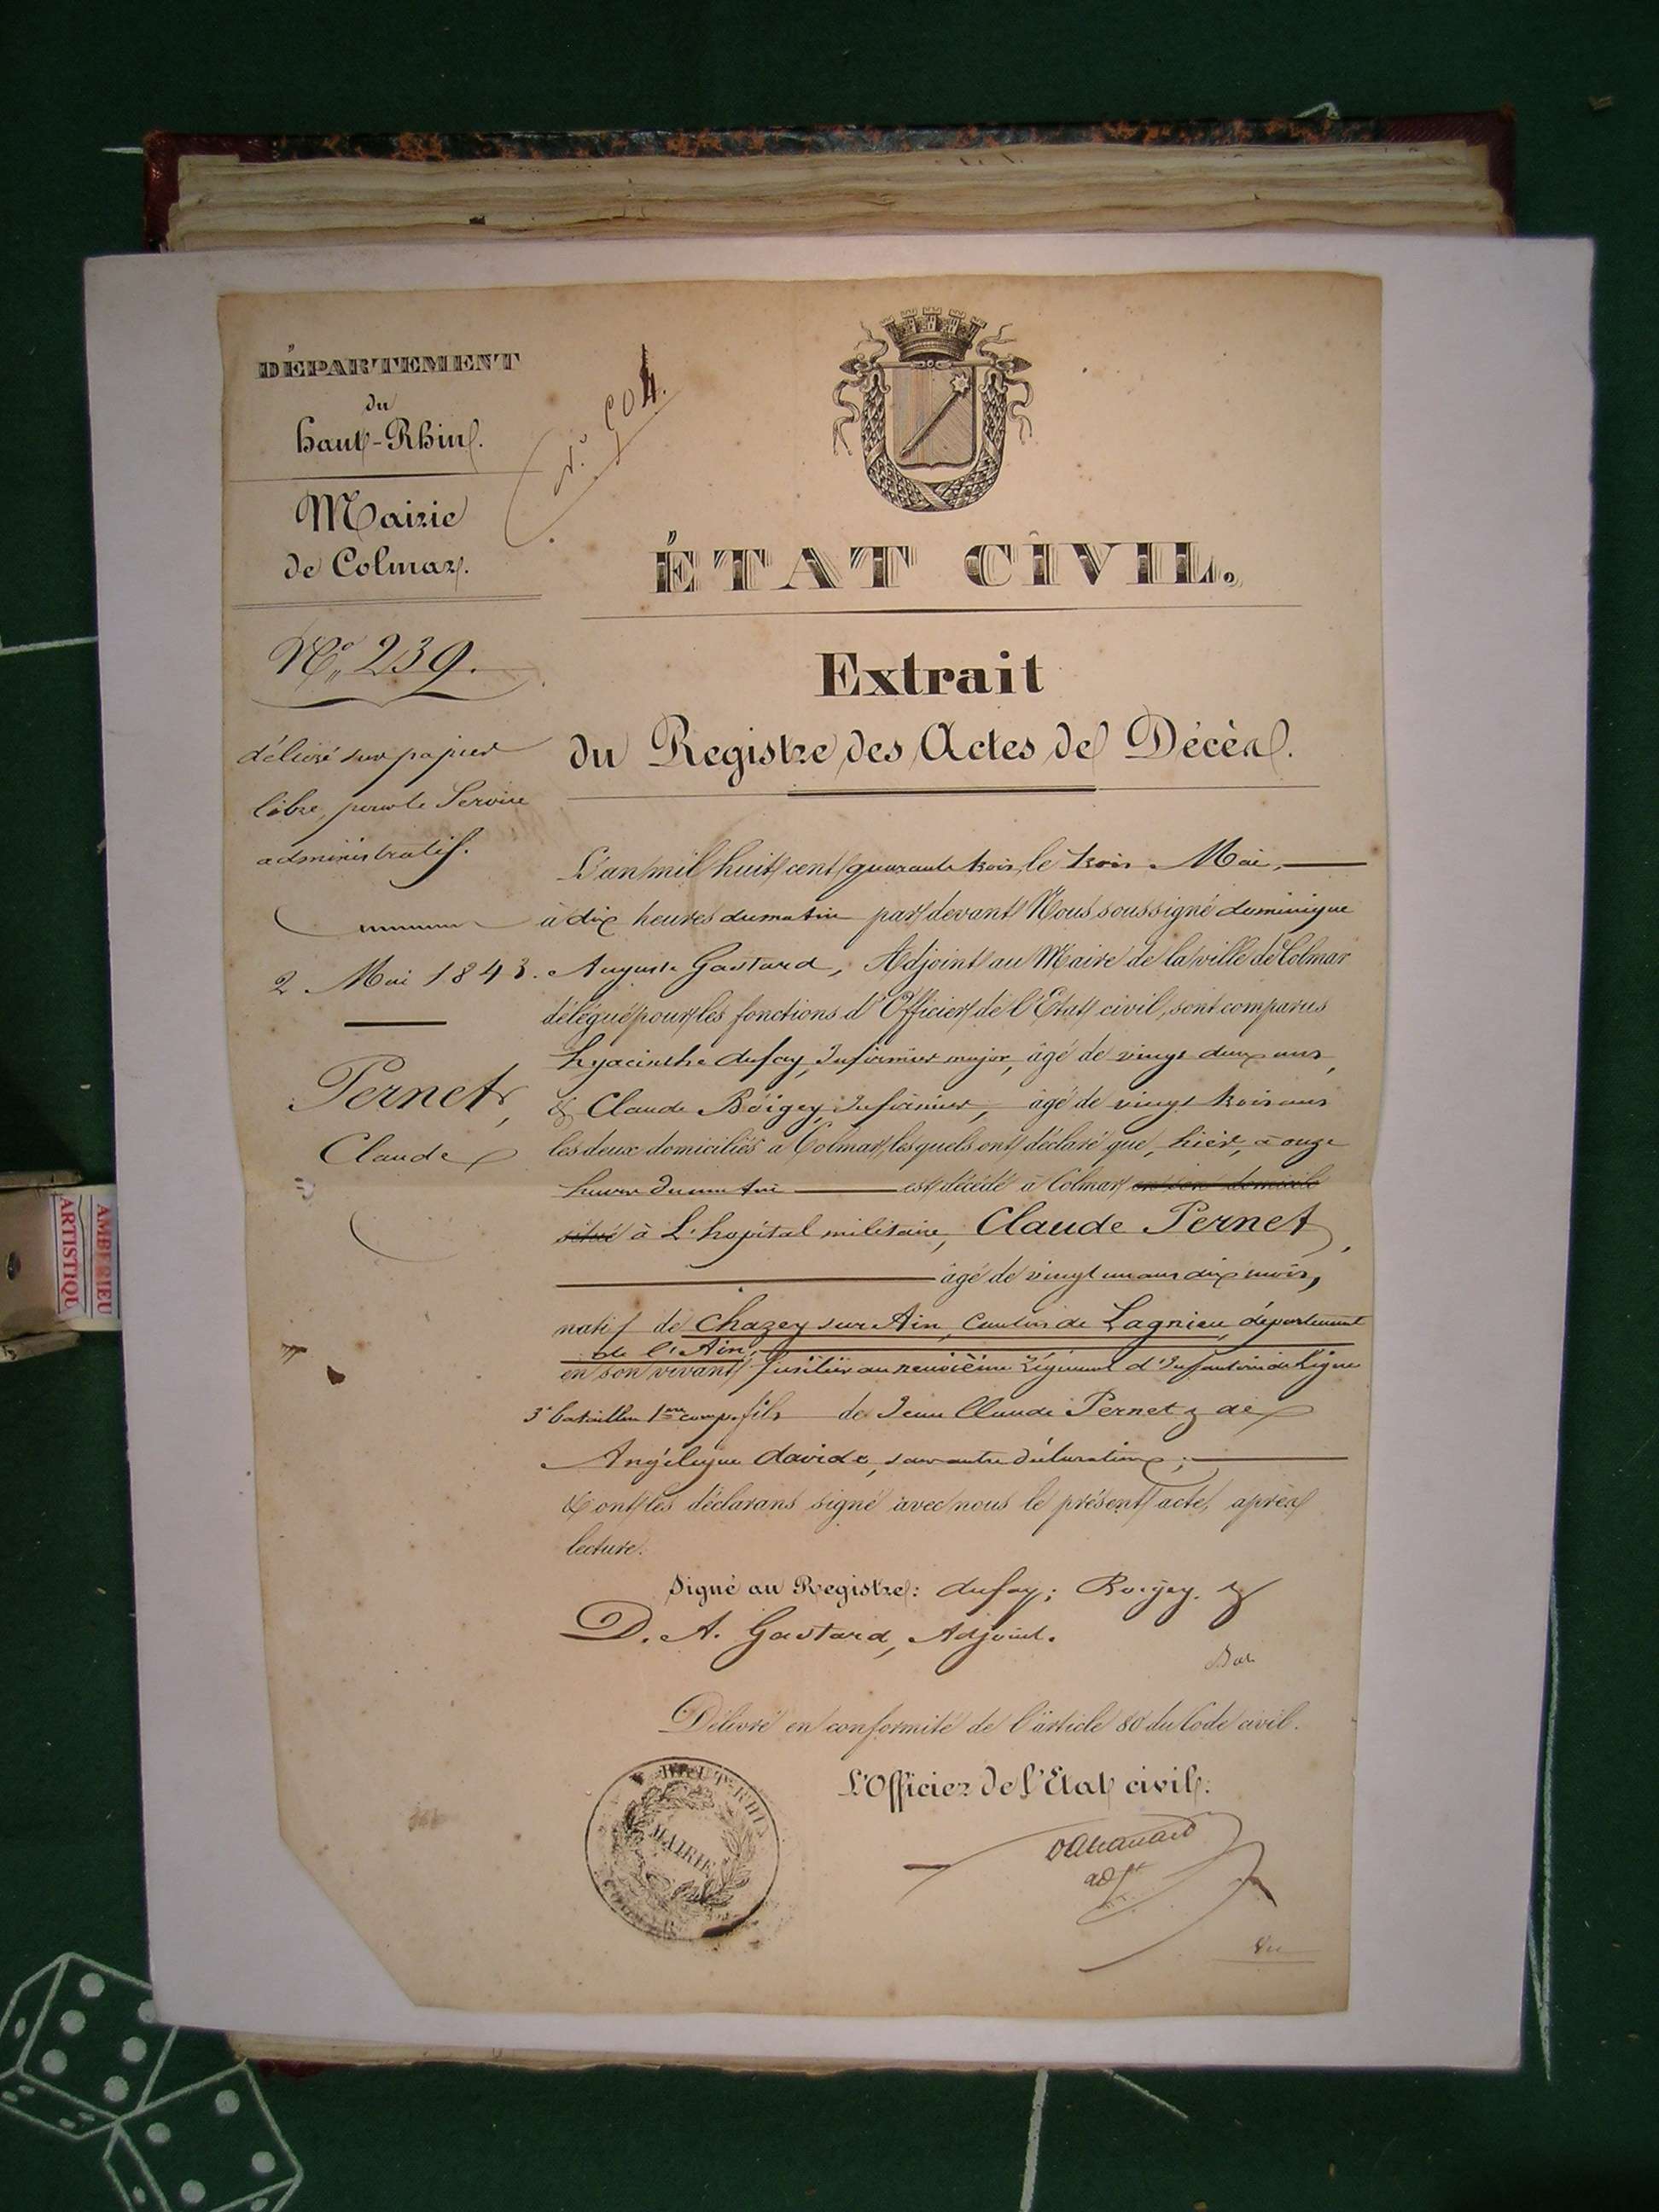 DÉPARTEMENT
du
Haut-Rhin.
Mairie
de Colmar.
N° 904.
N° 239.
délivré sur papier
libre, pour le Service
administratif.
2 Mai 1843.
Pernet,
Claude
ÉTAT CIVIL.
Extrait
du Registre des Actes de Décès.
L'an mil huit cent quarante trois, le trois Mai,
à dix heures du matin par devant Nous soussigné dominique
Auguste Gastard, Adjoint au Maire de la ville de Colmar
délégué pour les fonctions d'Officier de l'Etat civil, sont comparus
hyacinthe dufay, Infirmier major, âgé de vingt deux ans,
& Claude Boigey, Infirmier, âgé de vingt trois ans
les deux domiciliés à Colmar, lesquels ont déclaré que, hier, à onze
heures du matin est décédé à Colmar en son domicile
situé à L'hopital militaire, Claude Pernet,
âgé de vingt un ans dix mois,
natif de Chazey sur Ain, Canton de Lagnieu, département
de l'Ain,
en son vivant fusilier au neuvième Régiment d'Infanterie de Ligne
3e bataillon 1ere comp. fils de Jean Claude Pernet & de
Angélique davide, sans autre déclaration;
& ont les déclarans signé avec nous le présent acte, après
lecture.
Signé au Registre: dufay; Boigey. &
D. A. Gastard, Adjoint.
Délivré en conformité de l'article 80 du Code civil.
L'Officier de l'Etat civil.
adjt
HAUT-RHIN
MAIRIE
AMBERIEU
ARTISTIQU